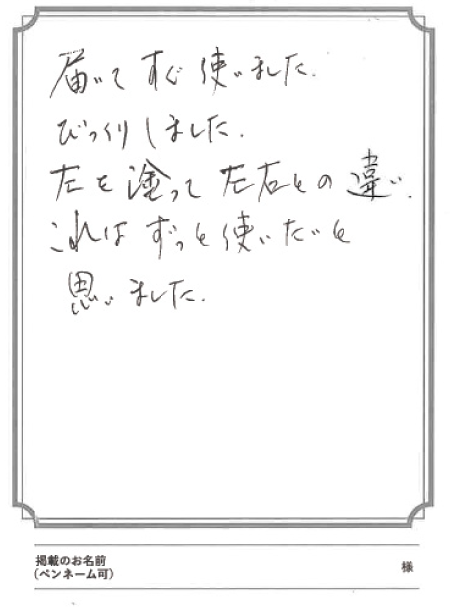 届いてすぐ使いました.
びっくりしました.
左を塗って左右との違い.
これはずっと使いたいと
思いました.
掲載のお名前
(ペンネーム可)
様